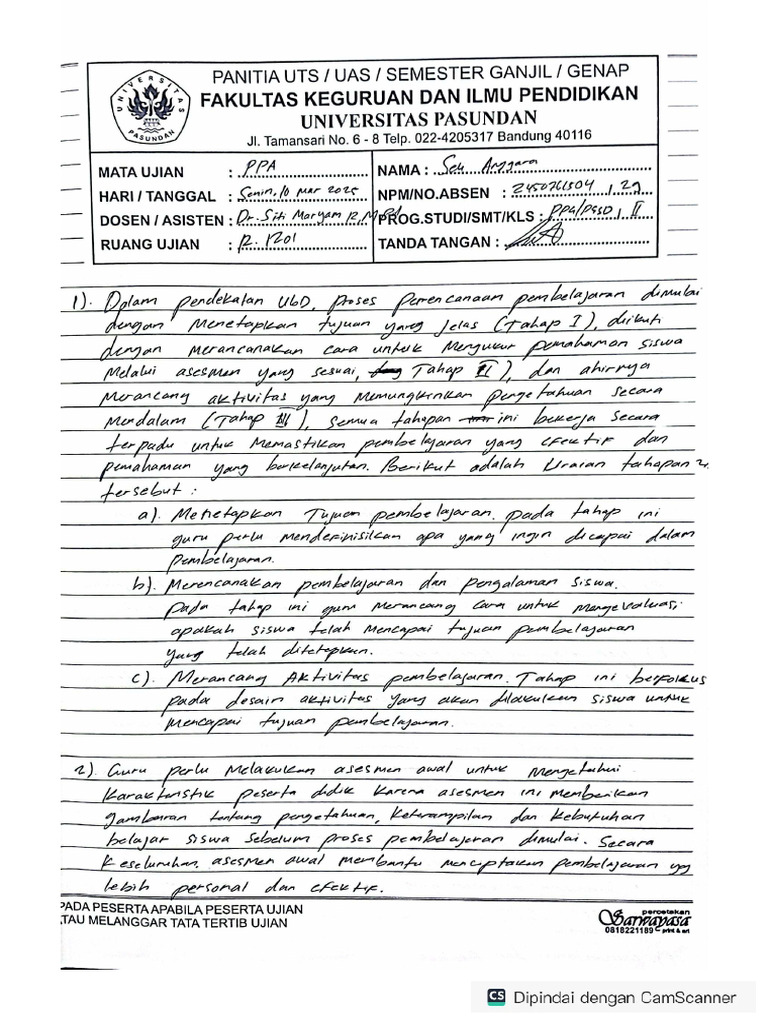 PANITIA UTS / UAS / SEMESTER GANJIL / GENAP
FAKULTAS KEGURUAN DAN ILMU PENDIDIKAN
UNIVERSITAS PASUNDAN
Jl. Tamansari No. 6 - 8 Telp. 022-4205317 Bandung 40116
UNIVERSITAS PASUNDAN
MATA UJIAN : PPA
HARI / TANGGAL : Senin, 10 Mar 2025
DOSEN / ASISTEN : Dr. Siti Maryam R, M.Pd
RUANG UJIAN : R. 1201
NAMA : Anggara
NPM/NO.ABSEN : , 29
PROG.STUDI/SMT/KLS : PPG/PGSD, II
TANDA TANGAN :
1). Dalam pendekatan UbD, proses perencanaan pembelajaran dimulai
dengan menetapkan tujuan yang jelas (Tahap I), diikuti
dengan merancanakan cara untuk mengukur pemahaman siswa
melalui asesmen yang sesuai, Tahap II), dan ahirnya
merancang aktivitas yang memungkinkan pengetahuan secara
mendalam (Tahap III), semua tahapan ini bekerja secara
terpadu untuk memastikan pembelajaran yang efektif dan
pemahaman yang berkelanjutan. Berikut adalah uraian tahapan2
tersebut :
a). Menetapkan Tujuan pembelajaran. pada tahap ini
guru perlu mendefinisikan apa yang ingin dicapai dalam
pembelajaran.
b). Merencanakan pembelajaran dan pengalaman siswa.
pada tahap ini guru merancang cara untuk mengevaluasi
apakah siswa telah mencapai tujuan pembelajaran
yang telah ditetapkan.
c). Merancang Aktivitas pembelajaran. Tahap ini berfokus
pada desain aktivitas yang akan dilakukan siswa untuk
mencapai tujuan pembelajaran.
2). Guru perlu melakukan asesmen awal untuk mengetahui
karakteristik peserta didik karena asesmen ini memberikan
gambaran tentang pengetahuan, keterampilan dan kebutuhan
belajar siswa sebelum proses pembelajaran dimulai. Secara
keseluruhan, asesmen awal membantu menciptakan pembelajaran yg
lebih personal dan efektif.
PADA PESERTA APABILA PESERTA UJIAN
TAU MELANGGAR TATA TERTIB UJIAN
percetakan
Sarwayasa
0818221189 print & art
CS Dipindai dengan CamScanner